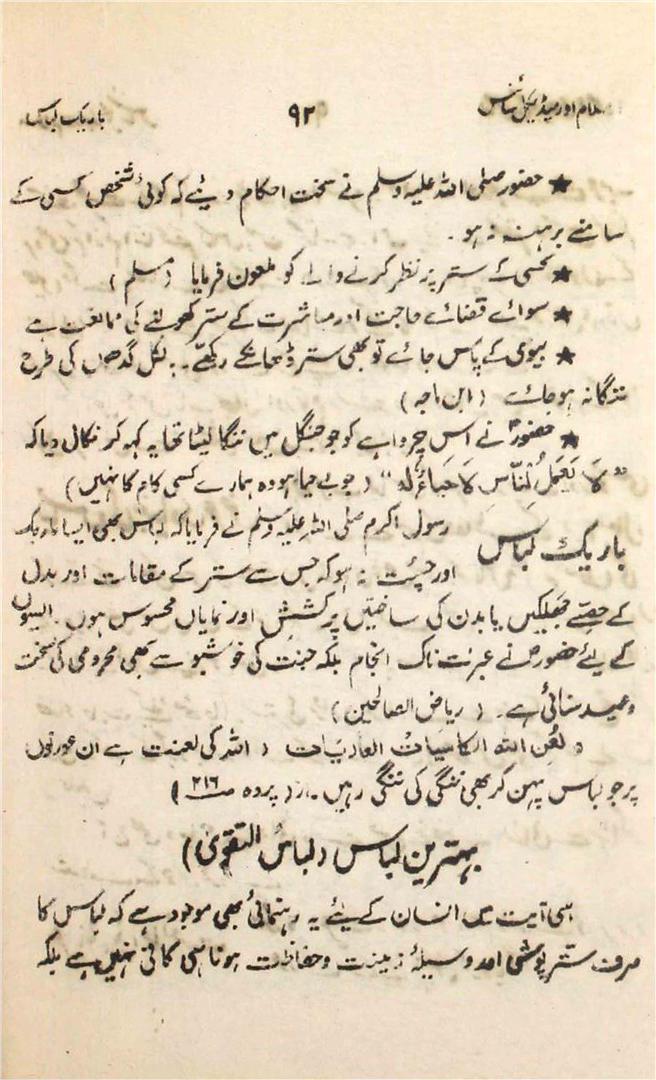 اسلام اور میڈیکل سائنس ۹۲ باریک لباس
★ حضور صلی اللہ علیہ وسلم نے سخت احکام دیئے کہ کوئی شخص کسی کے
سامنے برہنہ نہ ہو۔
★ کسی کے ستر پر نظر کرنے والے کو ملعون فرمایا (مسلم)
★ سوائے قضائے حاجت اور مباشرت کے ستر کھولنے کی ممانعت ہے
★ بیوی کے پاس جائے تو بھی ستر ڈھانکے رکھے۔ بالکل گدھوں کی طرح
ننگا نہ ہو جائے (ابن ماجہ)
★ حضورؐ نے اس چرواہے کو جو جنگل میں ننگا لیٹا تھا یہ کہہ کر نکال دیا کہ
"لَا يَعْمَلُ لَنَا مَنْ لَا حَيَاءَ لَهُ" (جو بے حیا ہو وہ ہمارے کسی کام کا نہیں)
باریک لباس رسول اکرم صلی اللہ علیہ وسلم نے فرمایا کہ لباس بھی ایسا باریک
اور چست نہ ہو کہ جس سے ستر کے مقامات اور بدن
کے حصے جھلکیں یا بدن کی ساختیں پرکشش اور نمایاں محسوس ہوں۔ ایسوں
کے لئے حضورؐ نے عبرت ناک انجام بلکہ جنت کی خوشبو سے بھی محرومی کی سخت
وعید سنائی ہے۔ (ریاض الصالحین)
لعن اللہ الکاسیات العاریات (اللہ کی لعنت ہے ان عورتوں
پر جو لباس پہن کر بھی ننگی کی ننگی رہیں۔ از (پردہ ص ۲۱۶)
بہترین لباس (لباسُ التقویٰ)
اسی آیت میں انسان کے لئے یہ رہنمائی بھی موجود ہے کہ لباس کا
صرف ستر پوشی اور وسیلۂ زینت و حفاظت ہونا ہی کافی نہیں ہے بلکہ